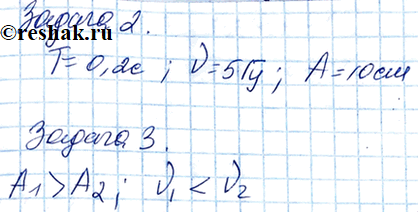 Задача 2.
©reshak.ru
T=0,2с ; ν=5Гц ; A=10см
Задача 3.
A₁>A₂ ; ν₁<ν₂